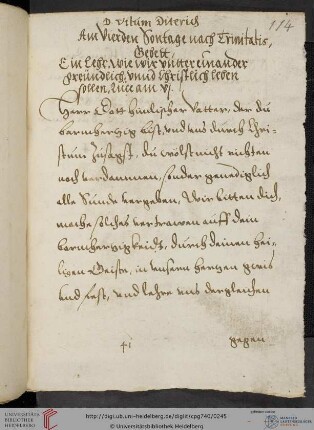 D. Vitum Diterich
114
Am Vierden Sontage nach Trinitatis,
Gebett,
Ein Lehr, wie wir unter einander
freündlich, vnnd Christlich leben
sollen, Luce am vj.
Herr Gott himlischer Vatter, der du
barmhertzig bist, vnd vns durch Chri-
stum zusagst, du wölst nicht richten
noch verdammen, sonder genediglich
alle Sünde vergeben, Wir bitten dich,
mache solches vertrawen auff dein
barmhertzigkeidt, durch deinen hei-
ligen Geiste, in vnsern hertzen gwis
vnd fest, vnd lehre vns dergleichen
41
gegen
UNIVERSITÄTS-
BIBLIOTHEK
HEIDELBERG
http://digi.ub.uni-heidelberg.de/diglit/cpg740/0245
© Universitätsbibliothek Heidelberg